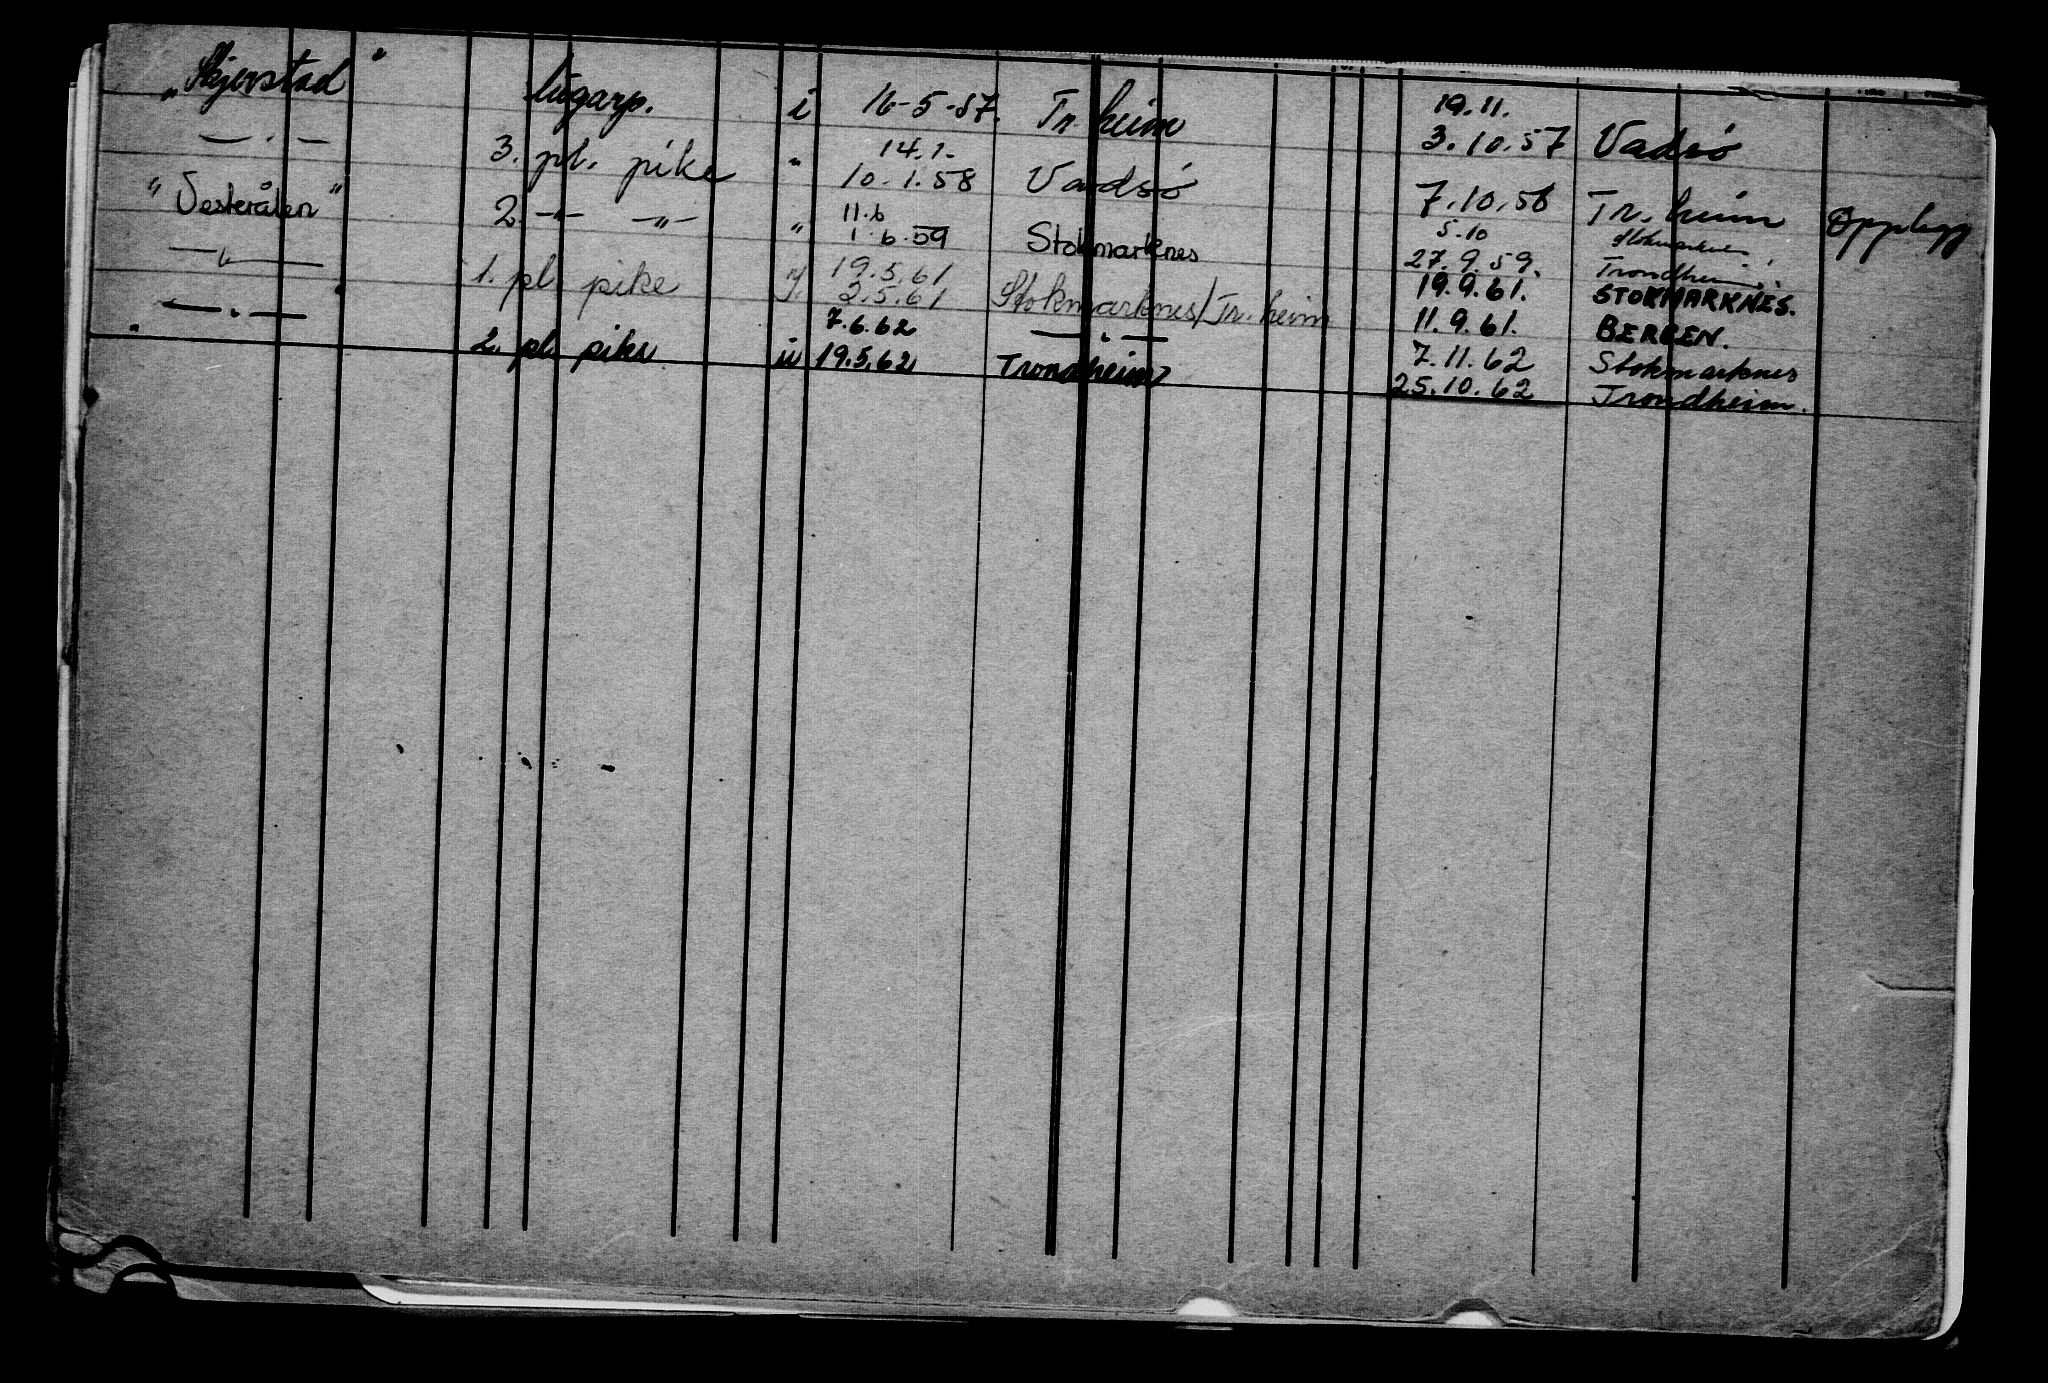 „Skjerstad" lugarp. i 16-5-57. Tr. heim 19.11. 3.10.57 Vadsö
— „ — 3. pl. pike " 14.1. 10.1.58 Vadsö 7.10.58 Tr. heim Opplegg
"Vesterålen" 2. — „ — " 11.6 1.6.59 Stokmarknes 5.10 Stokmarknes
27.9.59. Trondheim
— „ — 1. pl. pike 19.5.61 Stokmarknes/Tr. heim 19.9.61. STOKMARKNES.
2.5.61 11.9.61. BERGEN.
— „ — 2. pl. pike 7.6.62 — „ — 7.11.62 Stokmarknes
19.5.62 Trondheim 25.10.62 Trondheim.